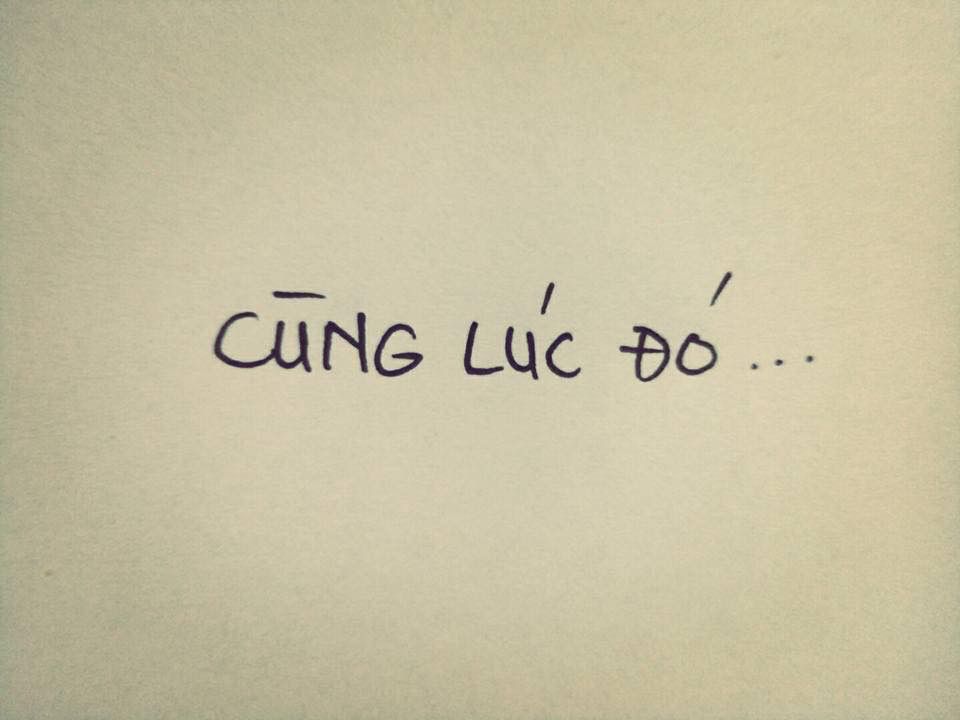 CŨNG LÚC ĐÓ...